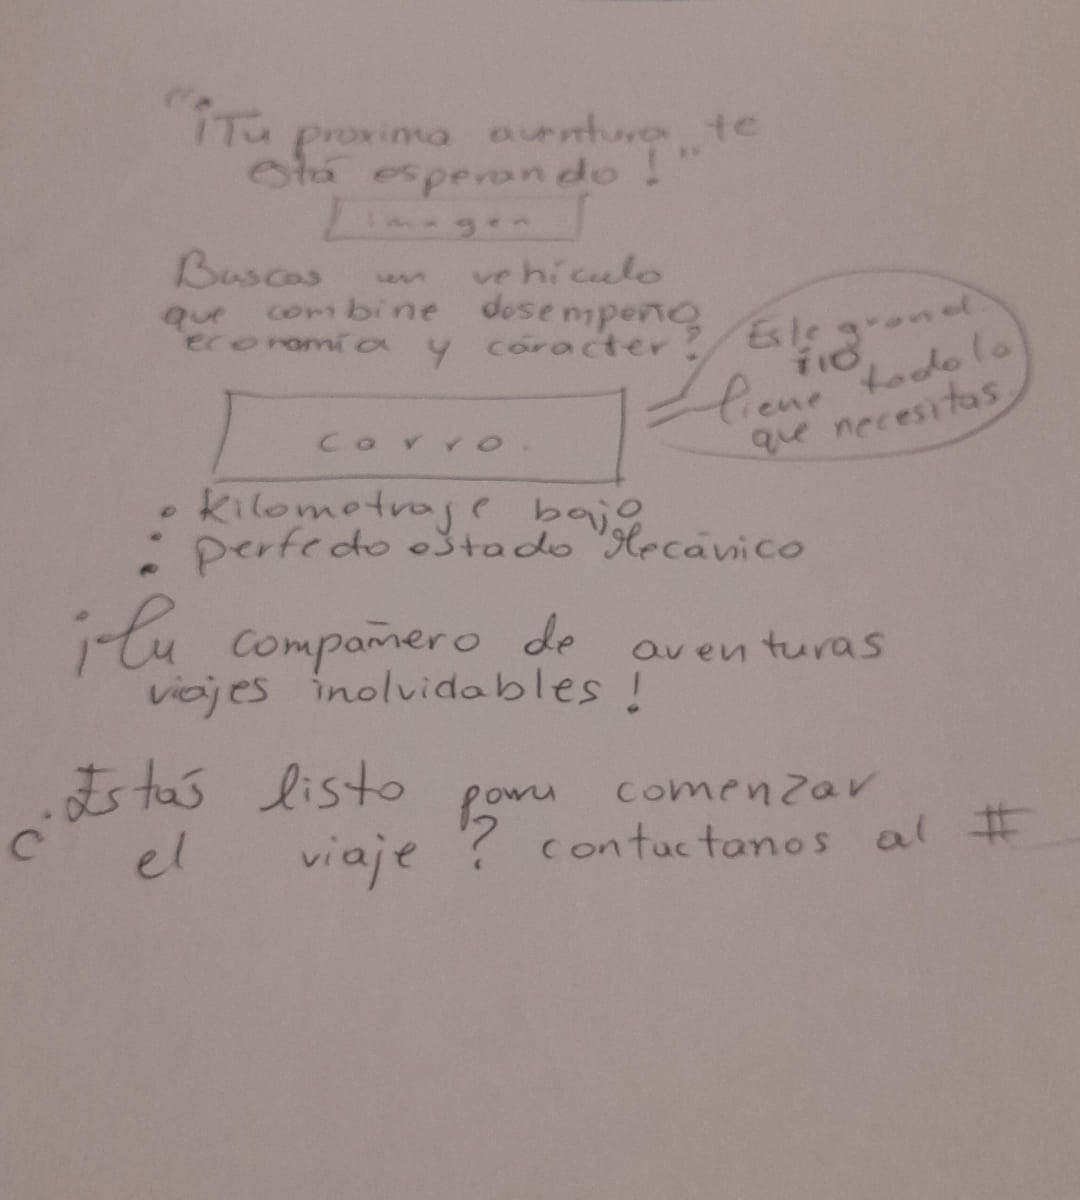 "¡Tu proxima aventura te
está esperando!"
imagen
Buscas un vehículo
que combine desempeño
economía y carácter?
Este grand
i10
tiene todo lo
que necesitas.
carro.
• kilometraje bajo
• perfecto estado Mecánico
•
¡tu compañero de aventuras
viajes inolvidables!
¿Estás listo para comenzar
el viaje? contactanos al #